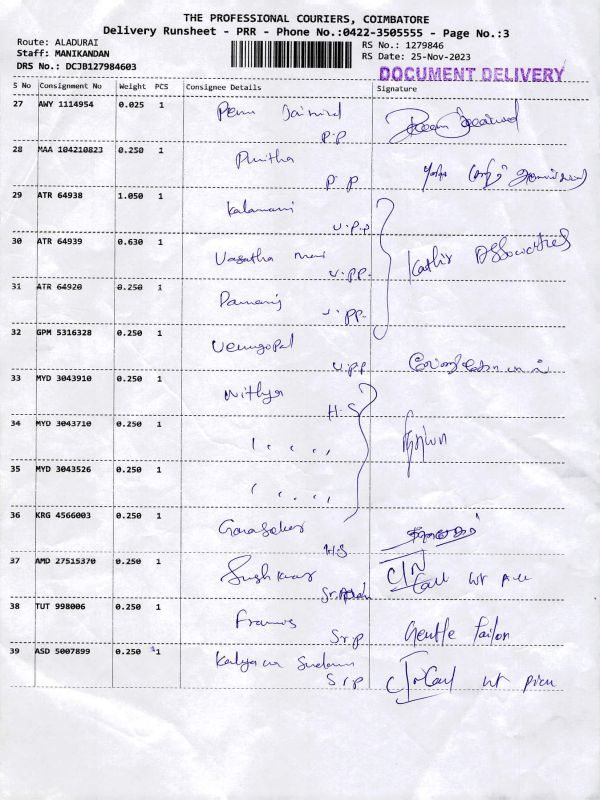 THE PROFESSIONAL COURIERS, COIMBATORE
Delivery Runsheet - PRR - Phone No.:0422-3505555 - Page No.:3
Route: ALADURAI
Staff: MANIKANDAN
DRS No.: DCJB127984603
RS No.: 1279846
RS Date: 25-Nov-2023
DOCUMENT DELIVERY
S No Consignment No Weight PCS Consignee Details Signature
27 AWY 1114954 0.025 1
P.P
28 MAA 104210823 0.250 1 Punitha
P.P
29 ATR 64938 1.050 1 Kalamani
V.P.P
30 ATR 64939 0.630 1 Vasatha mani Kathir Associates
V.PP.
31 ATR 64920 0.250 1 Damani
V.PP.
32 GPM 5316328 0.250 1 Venugopal
V.P.P
33 MYD 3043910 0.250 1 Nithya
H.S
34 MYD 3043710 0.250 1 நித்யா
35 MYD 3043526 0.250 1
36 KRG 4566003 0.250 1 Gunasekar
H.S
37 AMD 27515370 0.250 1 C/N
Call not pick
38 TUT 998006 0.250 1 Francis
Sr.P Gentle Tailor
39 ASD 5007899 0.250 1
Sr.P Call not pick